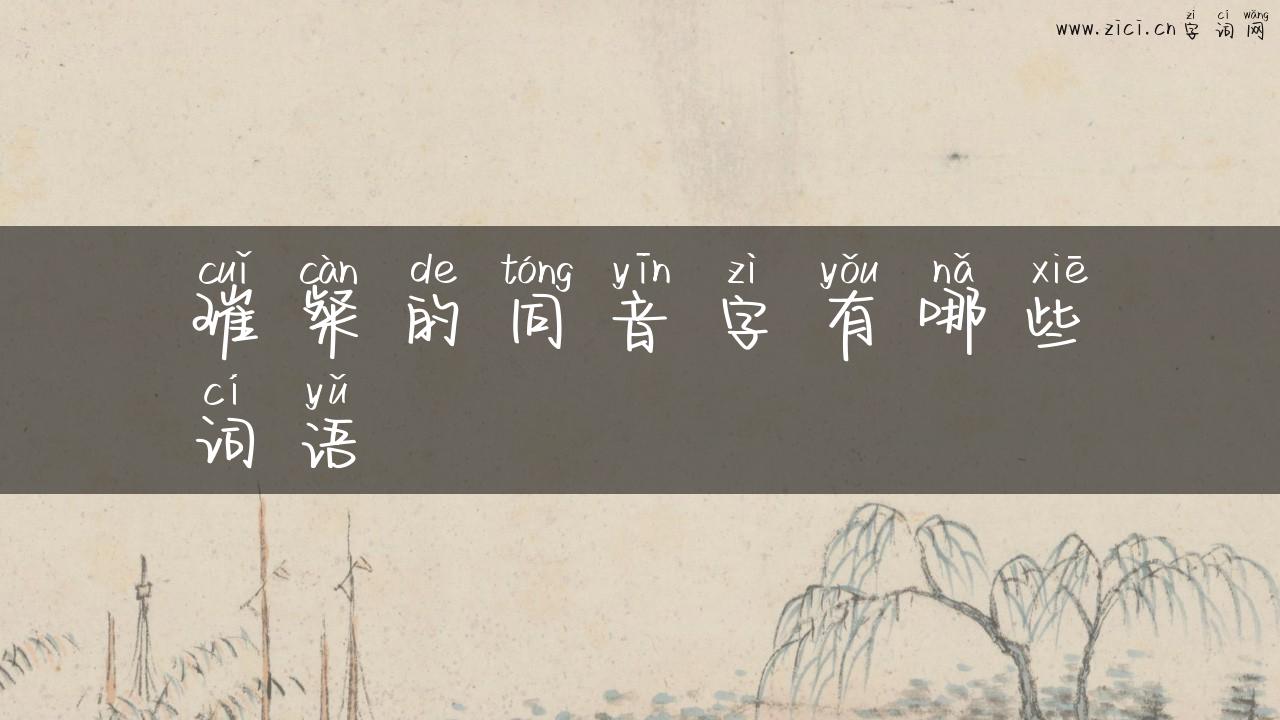 zì cí wǎng
www.zici.cn 字 词 网
cuǐ càn de tóng yīn zì yǒu nǎ xiē
璀 粲 的 同 音 字 有 哪 些
cí yǔ
词 语